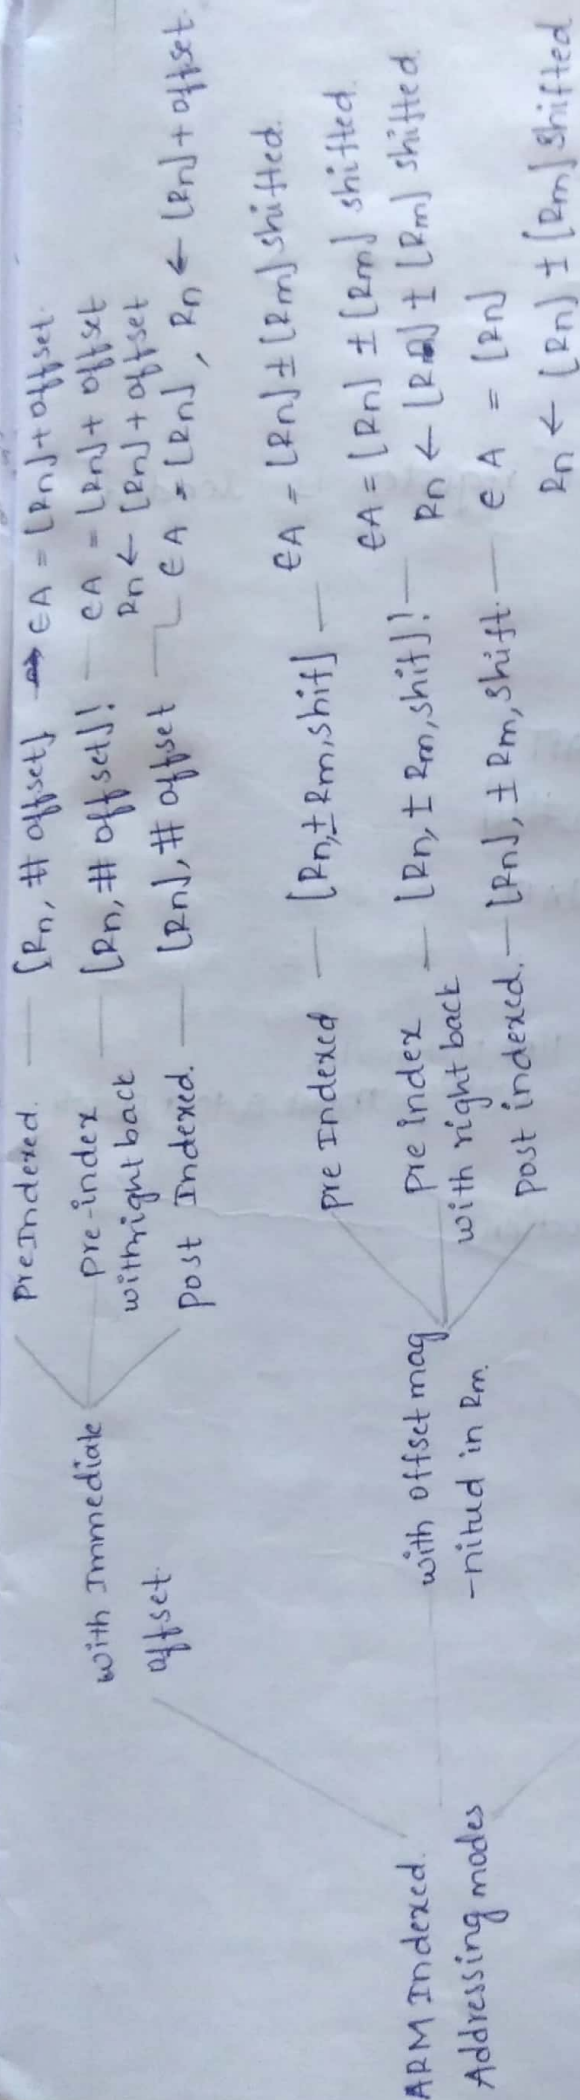 ARM Indexed.
Addressing modes
with Immediate
offset.
Pre Indexed. — [Rn, # offset] → EA = [Rn] + offset.
pre-index
with right back — [Rn, # offset]! — EA = [Rn] + offset
Rn ← [Rn] + offset
Post Indexed. — [Rn], # offset — EA = [Rn], Rn ← [Rn] + offset.
with offset mag
-nitud in Rm.
pre Indexed — [Rn, ± Rm, shif] — EA = [Rn] ± [Rm] shifted.
pre index
with right back — [Rn, ± Rm, shif]! — EA = [Rn] ± [Rm] shifted.
Rn ← [Rn] ± [Rm] shifted.
post indexed. — [Rn], ± Rm, shift. — EA = [Rn]
Rn ← [Rn] ± [Rm] shifted